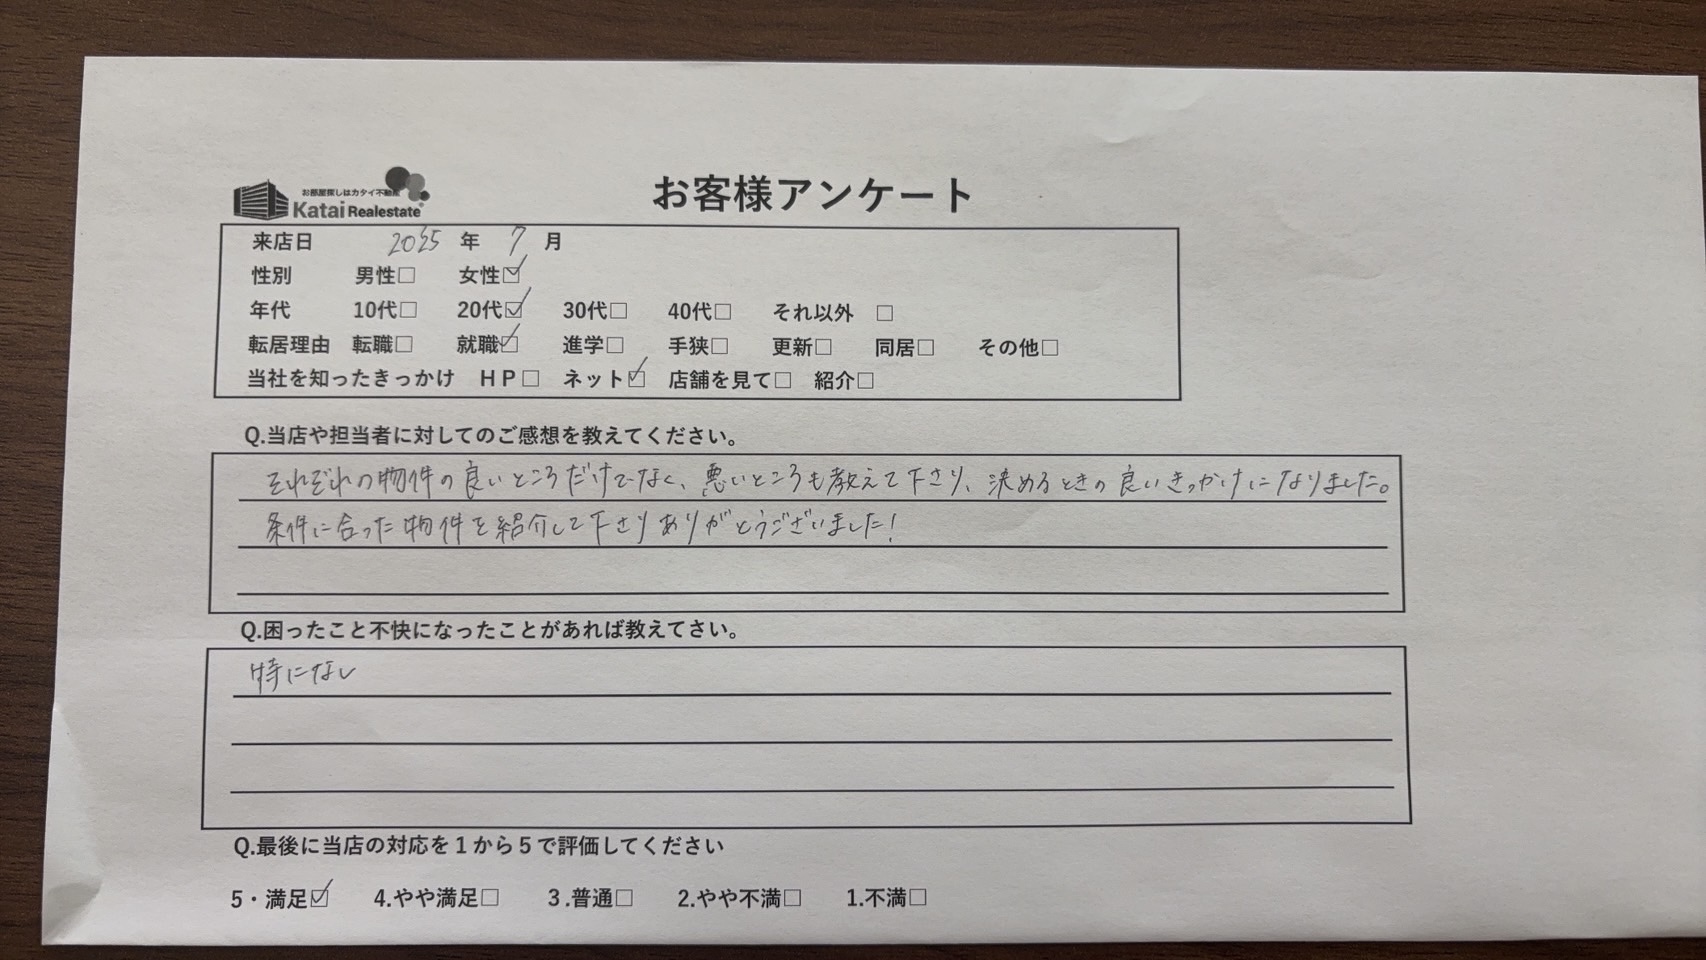 お部屋探しはカタイ不動産
Katai Realestate
お客様アンケート
来店日 2025 年 7 月
性別 男性□ 女性☑
年代 10代□ 20代☑ 30代□ 40代□ それ以外 □
転居理由 転職□ 就職☑ 進学□ 手狭□ 更新□ 同居□ その他□
当社を知ったきっかけ HP□ ネット☑ 店舗を見て□ 紹介□
Q.当店や担当者に対してのご感想を教えてください。
それぞれの物件の良いところだけでなく、悪いところも教えて下さり、決めるときの良いきっかけになりました。
条件に合った物件を紹介して下さりありがとうございました!
Q.困ったこと不快になったことがあれば教えてさい。
特になし
Q.最後に当店の対応を1から5で評価してください
5・満足☑ 4.やや満足□ 3.普通□ 2.やや不満□ 1.不満□